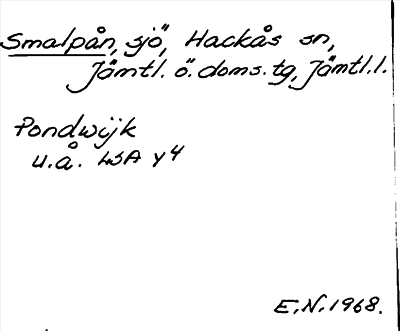 Smalpån, sjö, Hackås sn,
Jämtl. ö. doms. tg, Jämtl.l.
Pondwijk
u.å. LSA Y4
E.N. 1968.